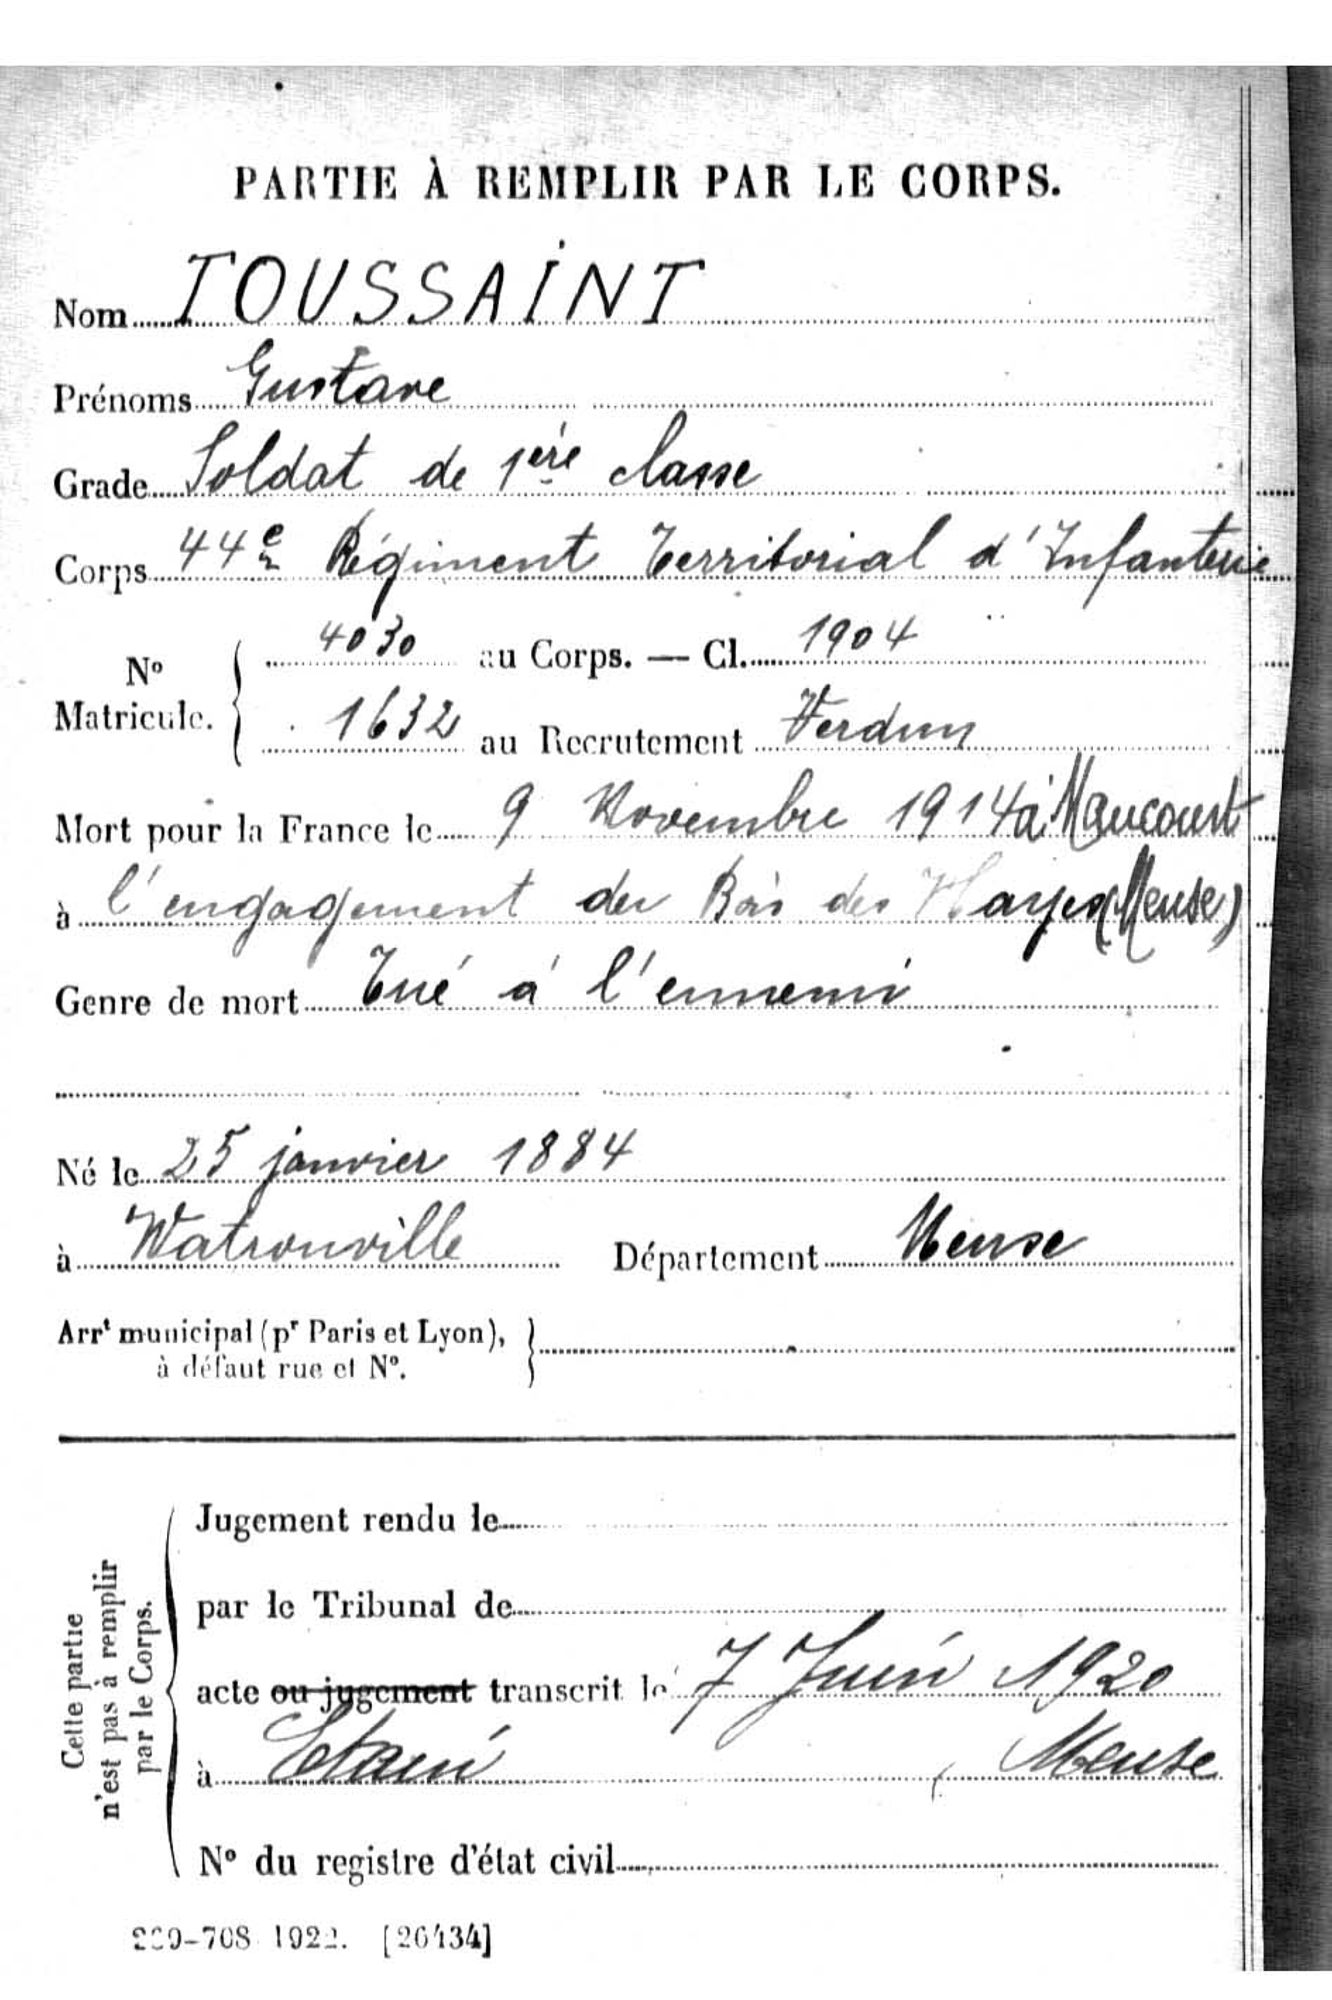 PARTIE À REMPLIR PAR LE CORPS.
Nom TOUSSAINT
Prénoms Gustave
Grade Soldat de 1ère classe
Corps 44e Régiment Territorial d'Infanterie
No Matricule. 4030 au Corps. — Cl. 1904
1632 au Recrutement Verdun
Mort pour la France le 9 Novembre 1914 à Maucourt
à l'engagement du Bois des Hayes (Meuse)
Genre de mort Tué à l'ennemi
Né le 25 janvier 1884
à Watronville Département Meuse
Arrt municipal (pr Paris et Lyon),
à défaut rue et No.
Cette partie
n'est pas à remplir
par le Corps.
Jugement rendu le
par le Tribunal de
acte ou jugement transcrit le 7 Juin 1920
à Etain, Meuse
No du registre d'état civil
1922. [26434]